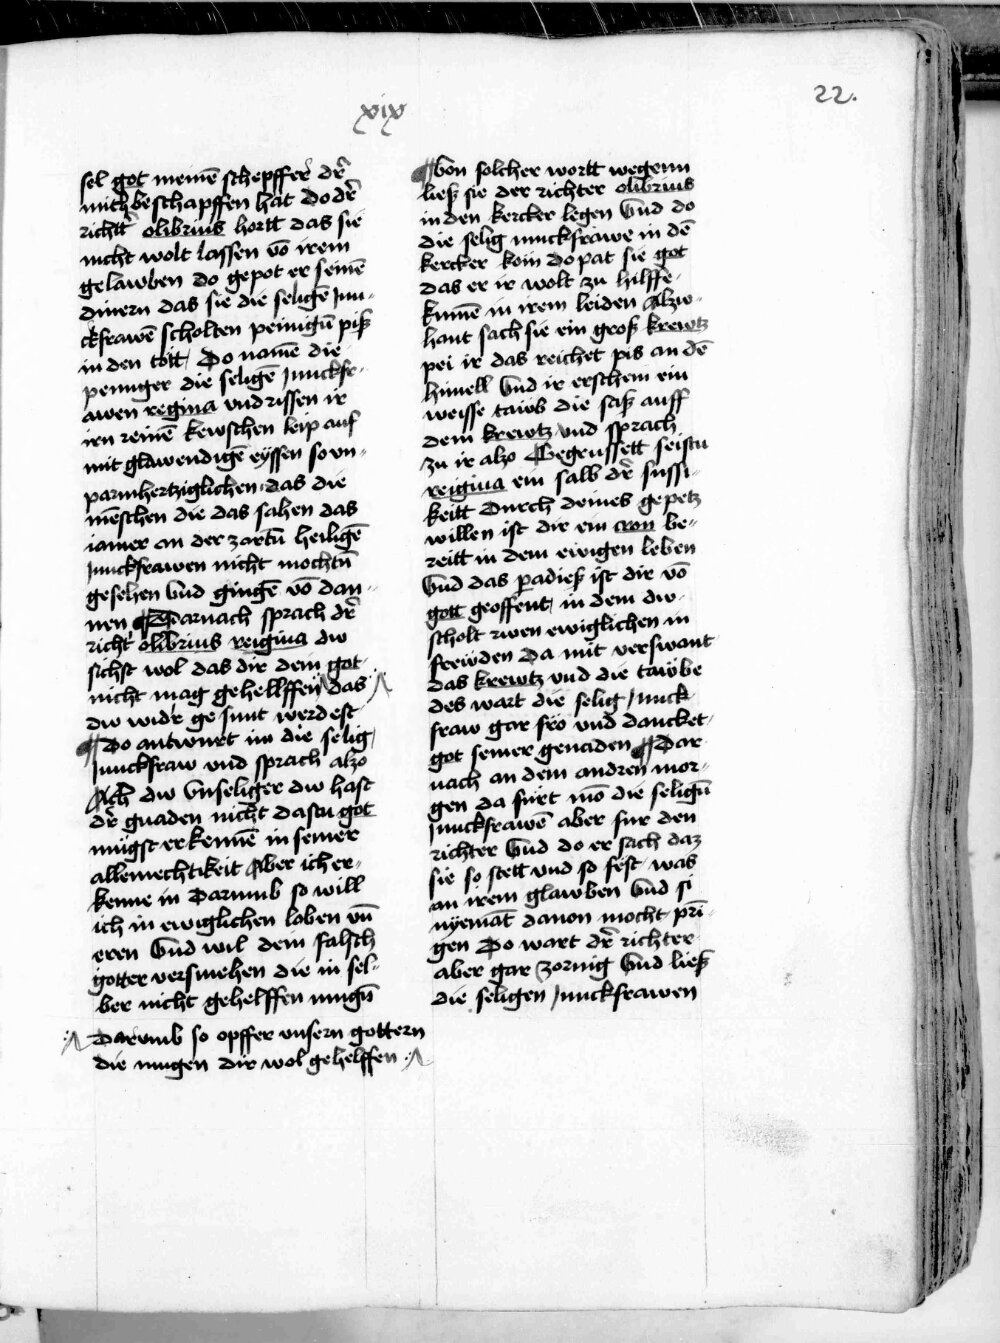 22.
xix
sel got meinē schepffer dʳ
mich beschapffen hat do dʳ
richtʳ olibrius hortt das sie
nicht wolt lassen vō irem
gelawben do gepot er seinē
dinern das sie die seligē Jun⸗
ckfrawē scholten peinigū piß
in den tott Do namē die
peiniger die seligē Junckfr⸗
awen regina vnd rissen ir
irn reinē kewschen leip auf
mit glawendigē eyssen so vn⸗
parmhertziglichen das die
mēschen die das sahen das
iamer an der zartū heiligē
Junckfrawen nicht mochtū
gesehen Vnd gingē vō dan⸗
nen ¶ Darnach sprach dʳ
richtʳ olibrius reigina du
sichst wol das dir dein got
nicht mag gehellffen das
du widʳ gesunt werdest
¶ Do antwurt im die selig
Junckfraw vnd sprach alzo
Ach du vnseliger du hast
dʳ gnaden nicht dastu got
mügst erkennē in seiner
allmechtikeit Aber ich er⸗
kenne in Darumb so will
ich in ewiglichen loben vū
eren Vnd wil dein falsch
gotter versmehen die in sel⸗
ber nicht gehelffen mugū
Darumb so opffer vnsern gottern
die mugen dir wol gehelffen
¶ Von solcher wortt wegenn
ließ sie der richter olibrius
in den kercker legen Vnd do
die selig Junckfrawe in dē
kercker kom do pat sie got
das er ir wolt zu hilffe
kumē in irem leiden Alzu⸗
hant sach sie ein groß krewtz
pei ir das reichet pis an dē
himell Vnd ir erschein ein
weisse tawb die saß auff
dem krewtz vnd sprach
zu ir alzo Gegrussett seistu
reigina ein salb dʳ sussi⸗
keitt Durch deines gepetz
willen ist dir ein cron be⸗
reitt in dem ewigen leben
Vnd das padieß ist dir vō
gott geoffent in dem du
scholt rwen ewiglichen in
frewden Da mit verswant
das krewtz vnd die tawbe
des wart die selig Junck
fraw gar fro vnd dancket
got seiner genaden ¶ Dar
nach an dem andren mor⸗
gen da furt mō die seligū
Junckfrawē aber fur den
richter Vnd do er sach daz
sie so stett vnd so fest was
an irem glawben Vnd si
nyemāt dauon mocht pri⸗
gen Do wart dʳ richter
aber gar zornig Vnd ließ
die seligen Junckfrawen